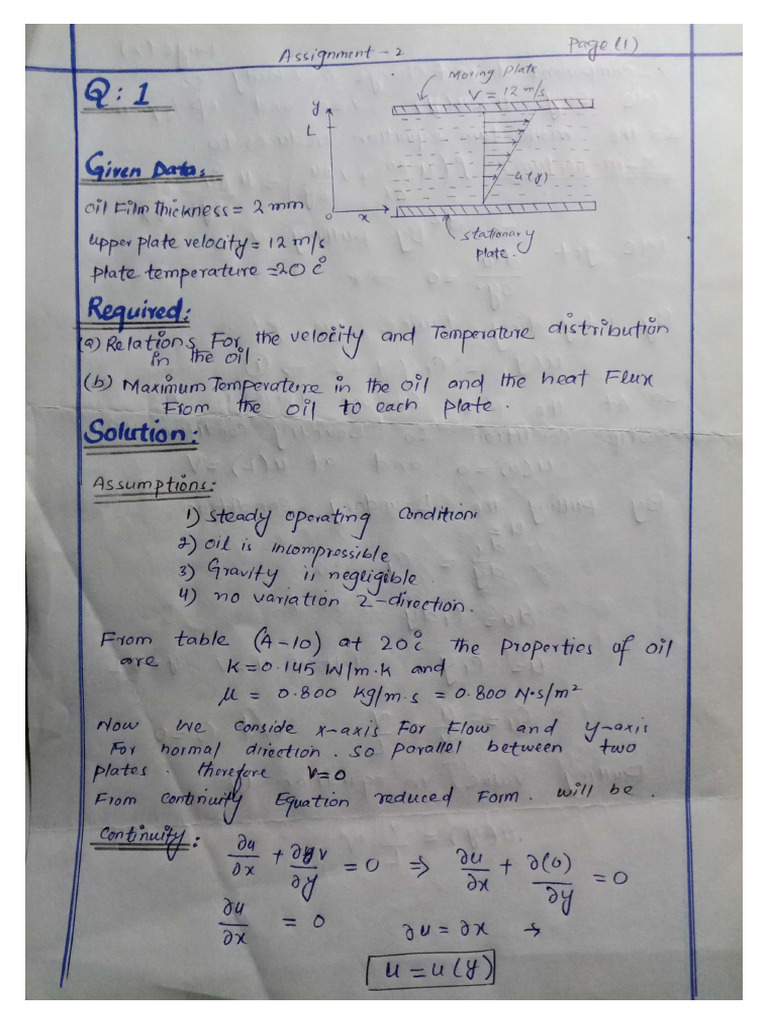 Assignment - 2
Page (1)
Q : 1
Moving Plate
V = 12 m/s
y
L
u(y)
0
x
Stationary
Plate.
Given Data:
oil Film thickness = 2 mm
upper plate velocity = 12 m/s
plate temperature = 20 °c
Required:
(a) Relations For the velocity and Temperature distribution
in the oil.
(b) Maximum Temperature in the oil and the heat Flux
From the oil to each plate.
Solution:
Assumptions:
1) Steady operating Condition
2) oil is incompressible
3) Gravity is negligible.
4) no variation z-direction.
From table (A-10) at 20 °c the properties of oil
are k = 0.145 W/m.k and
μ = 0.800 kg/m.s = 0.800 N.s/m²
Now We Conside x-axis For Flow and y-axis
For normal direction. so parallel between two
plates. therefore v=0
From continuity Equation reduced Form. will be.
Continuity:
∂u/∂x + ∂v/∂y = 0 ⇒ ∂u/∂x + ∂(0)/∂y = 0
∂u/∂x = 0 ∂u = ∂x →
u = u(y)